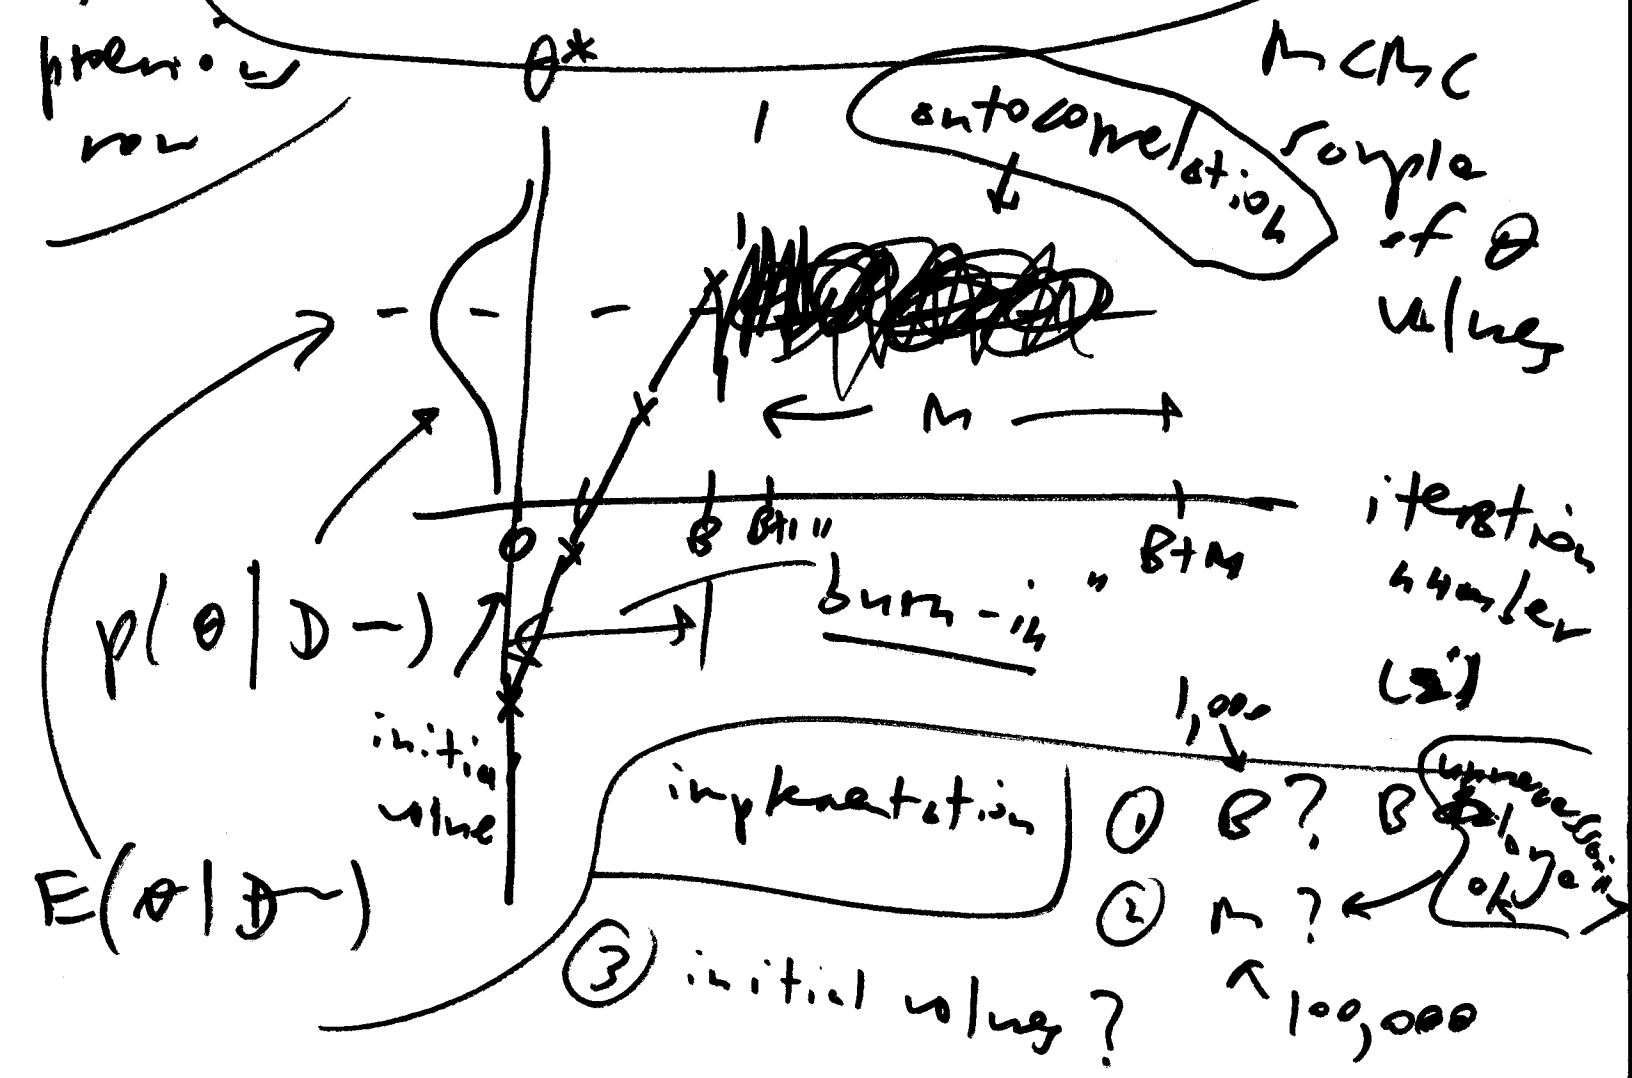 previous
row
θ*
MCMC
sample
of θ
values
autocorrelation
M
0
B
B+1
B+M
iteration
number
(i)
p(θ|D—)
"burn-in"
initial
value
E(θ|D~)
implementation
1,000
① B?
B
unnecessari
ly
large
ok
② M?
100,000
③ initial values?